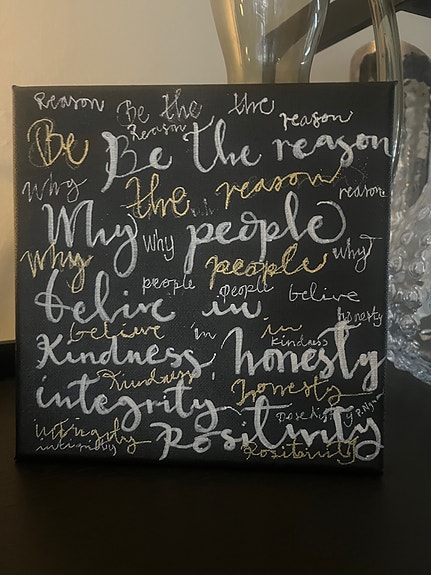 Reason Be the the
Reason reason
Be Be the reason
Why the reason reason
Why why people
Why people why
people People belive
belive in honesty
believe in in
Kindness, honesty kindness
Kindness honesty
integrity
Positivity
Positivity